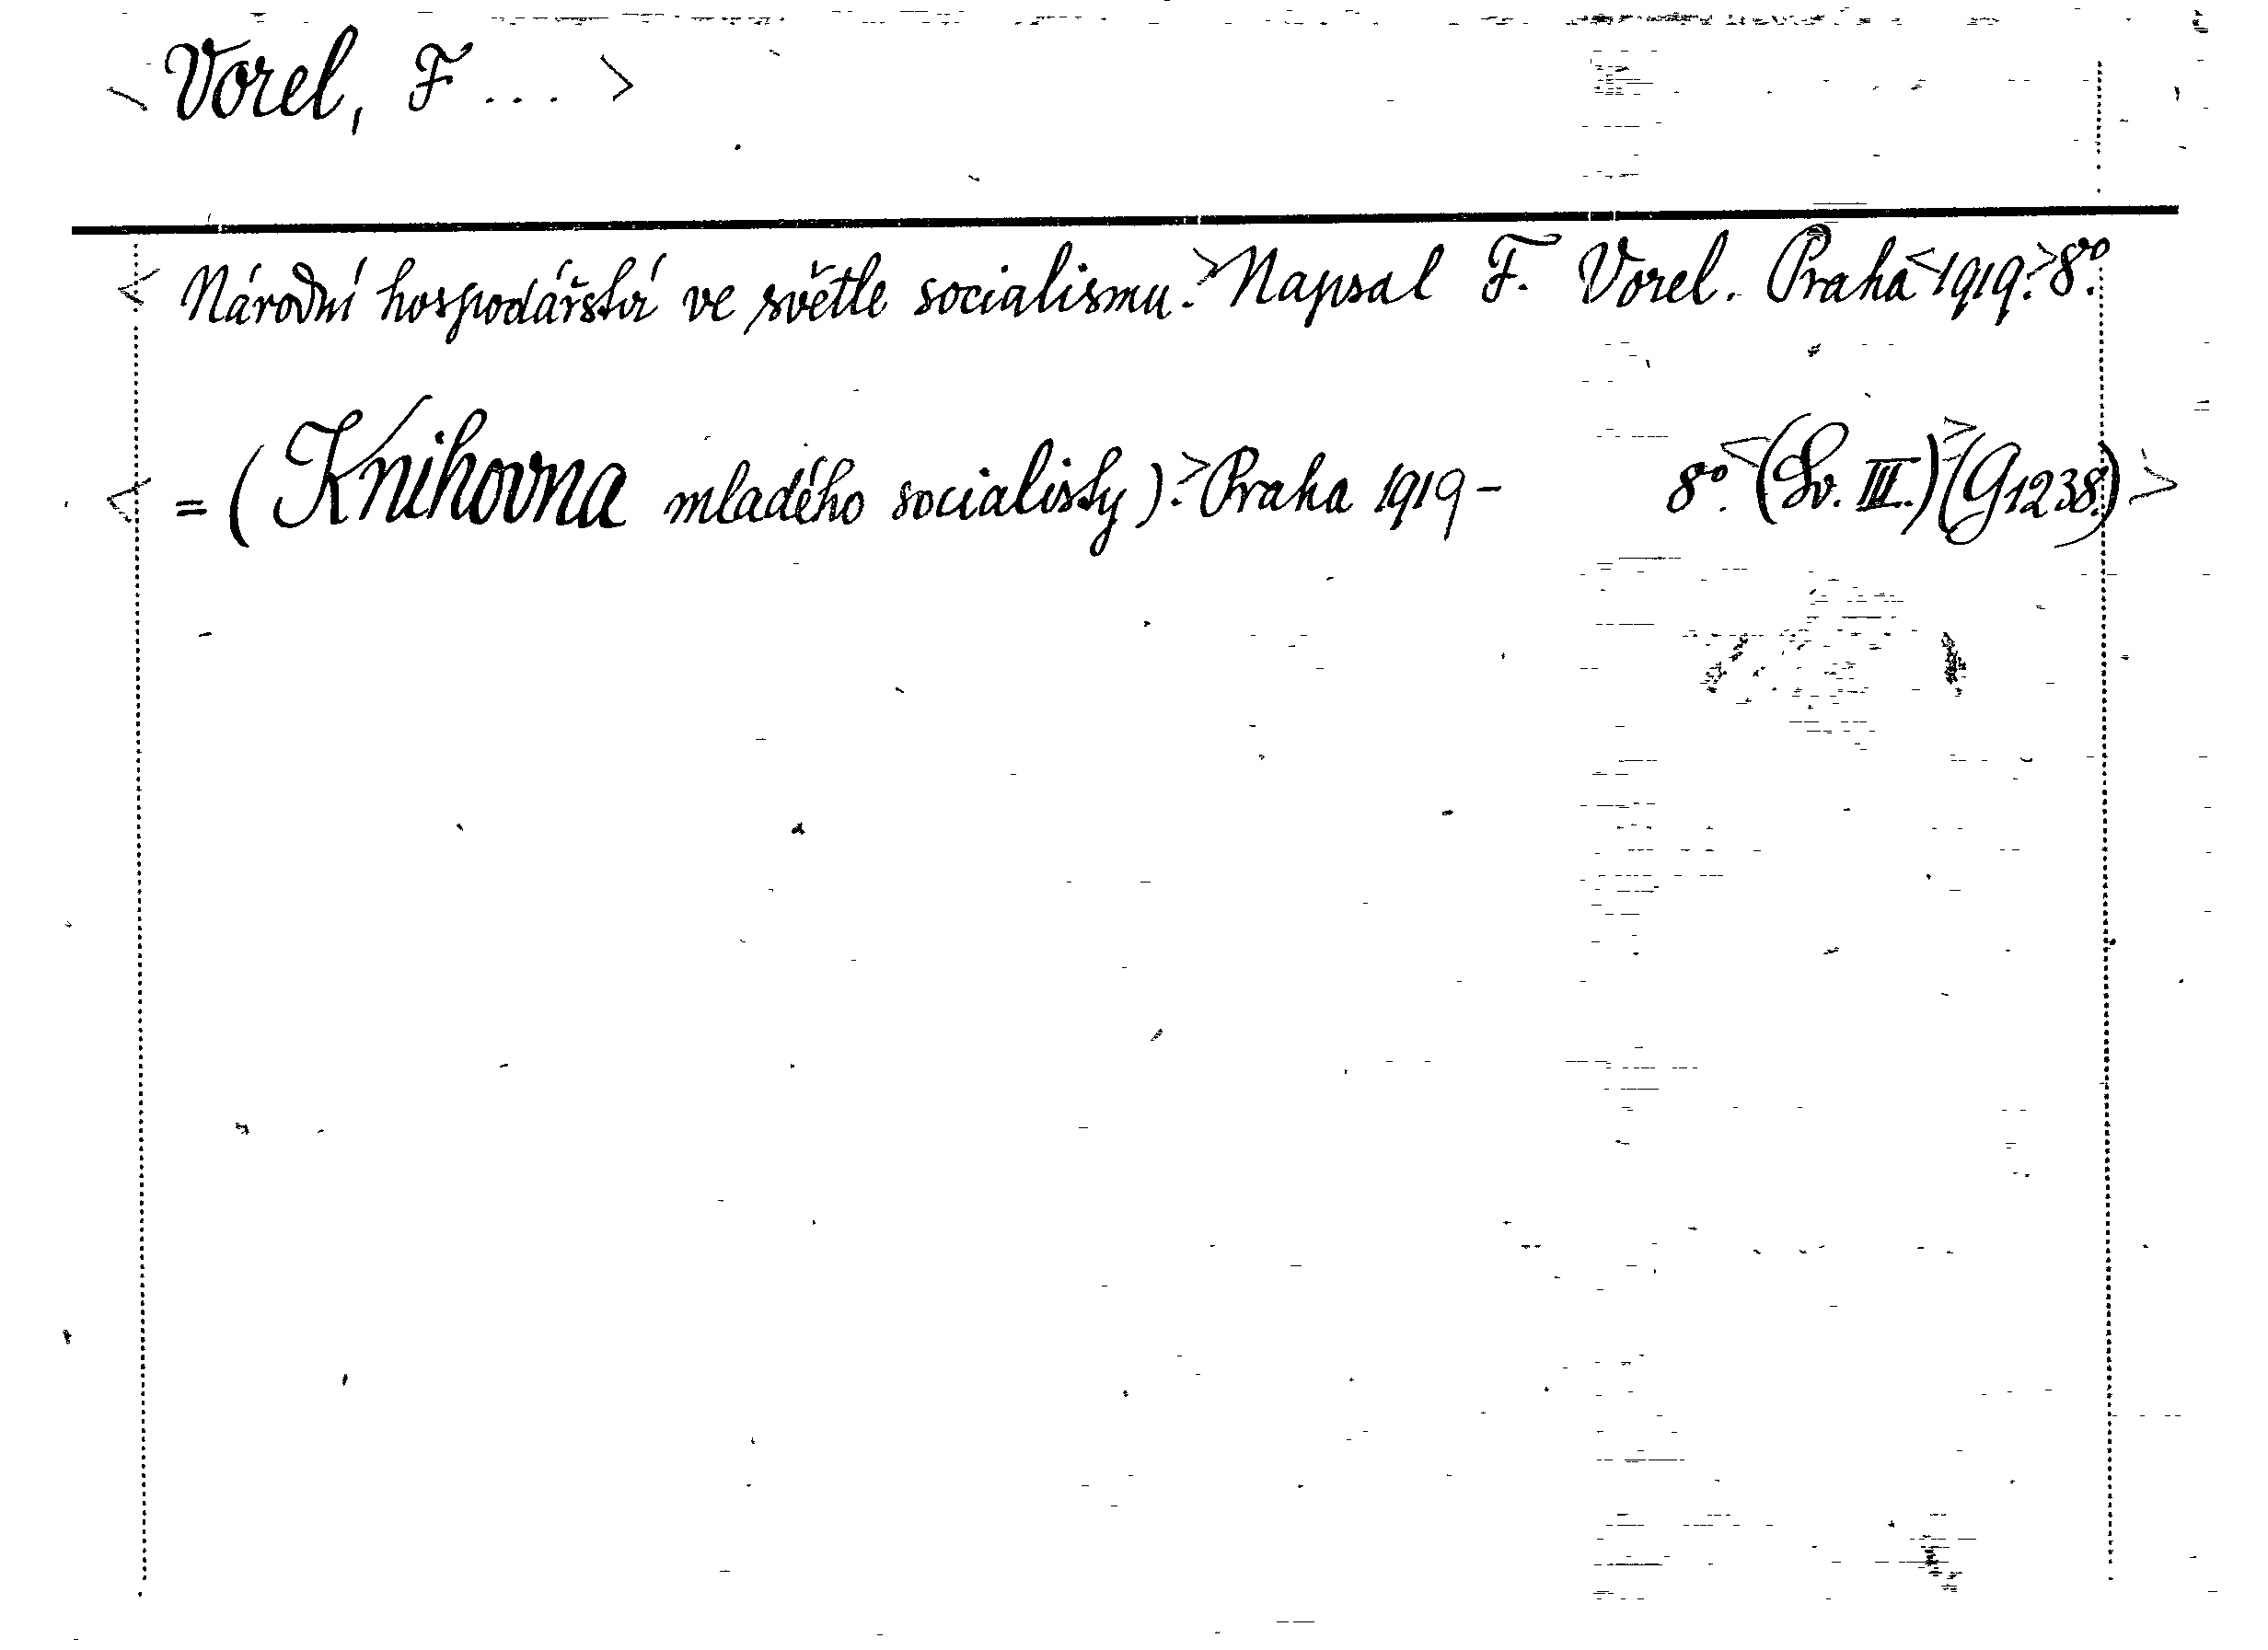 <Vorel, F...>
<Národní hospodářství ve světle socialismu.> Napsal F. Vorel. Praha <1919.> 8°.
<= (Knihovna mladého socialisty).> Praha 1919- 8°. <(Sv. III.)> (G1238.)>